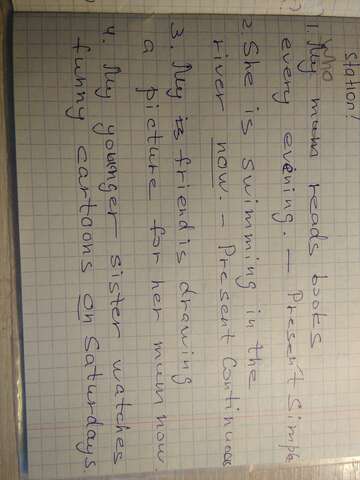 station?
Who
1. My mum reads books
every evening. – Present Simple
2. She is swimming in the
river now. – Present Continuous
3. My is friend is drawing
a picture for her mum now
4. My younger sister watches
funny cartoons on Saturdays